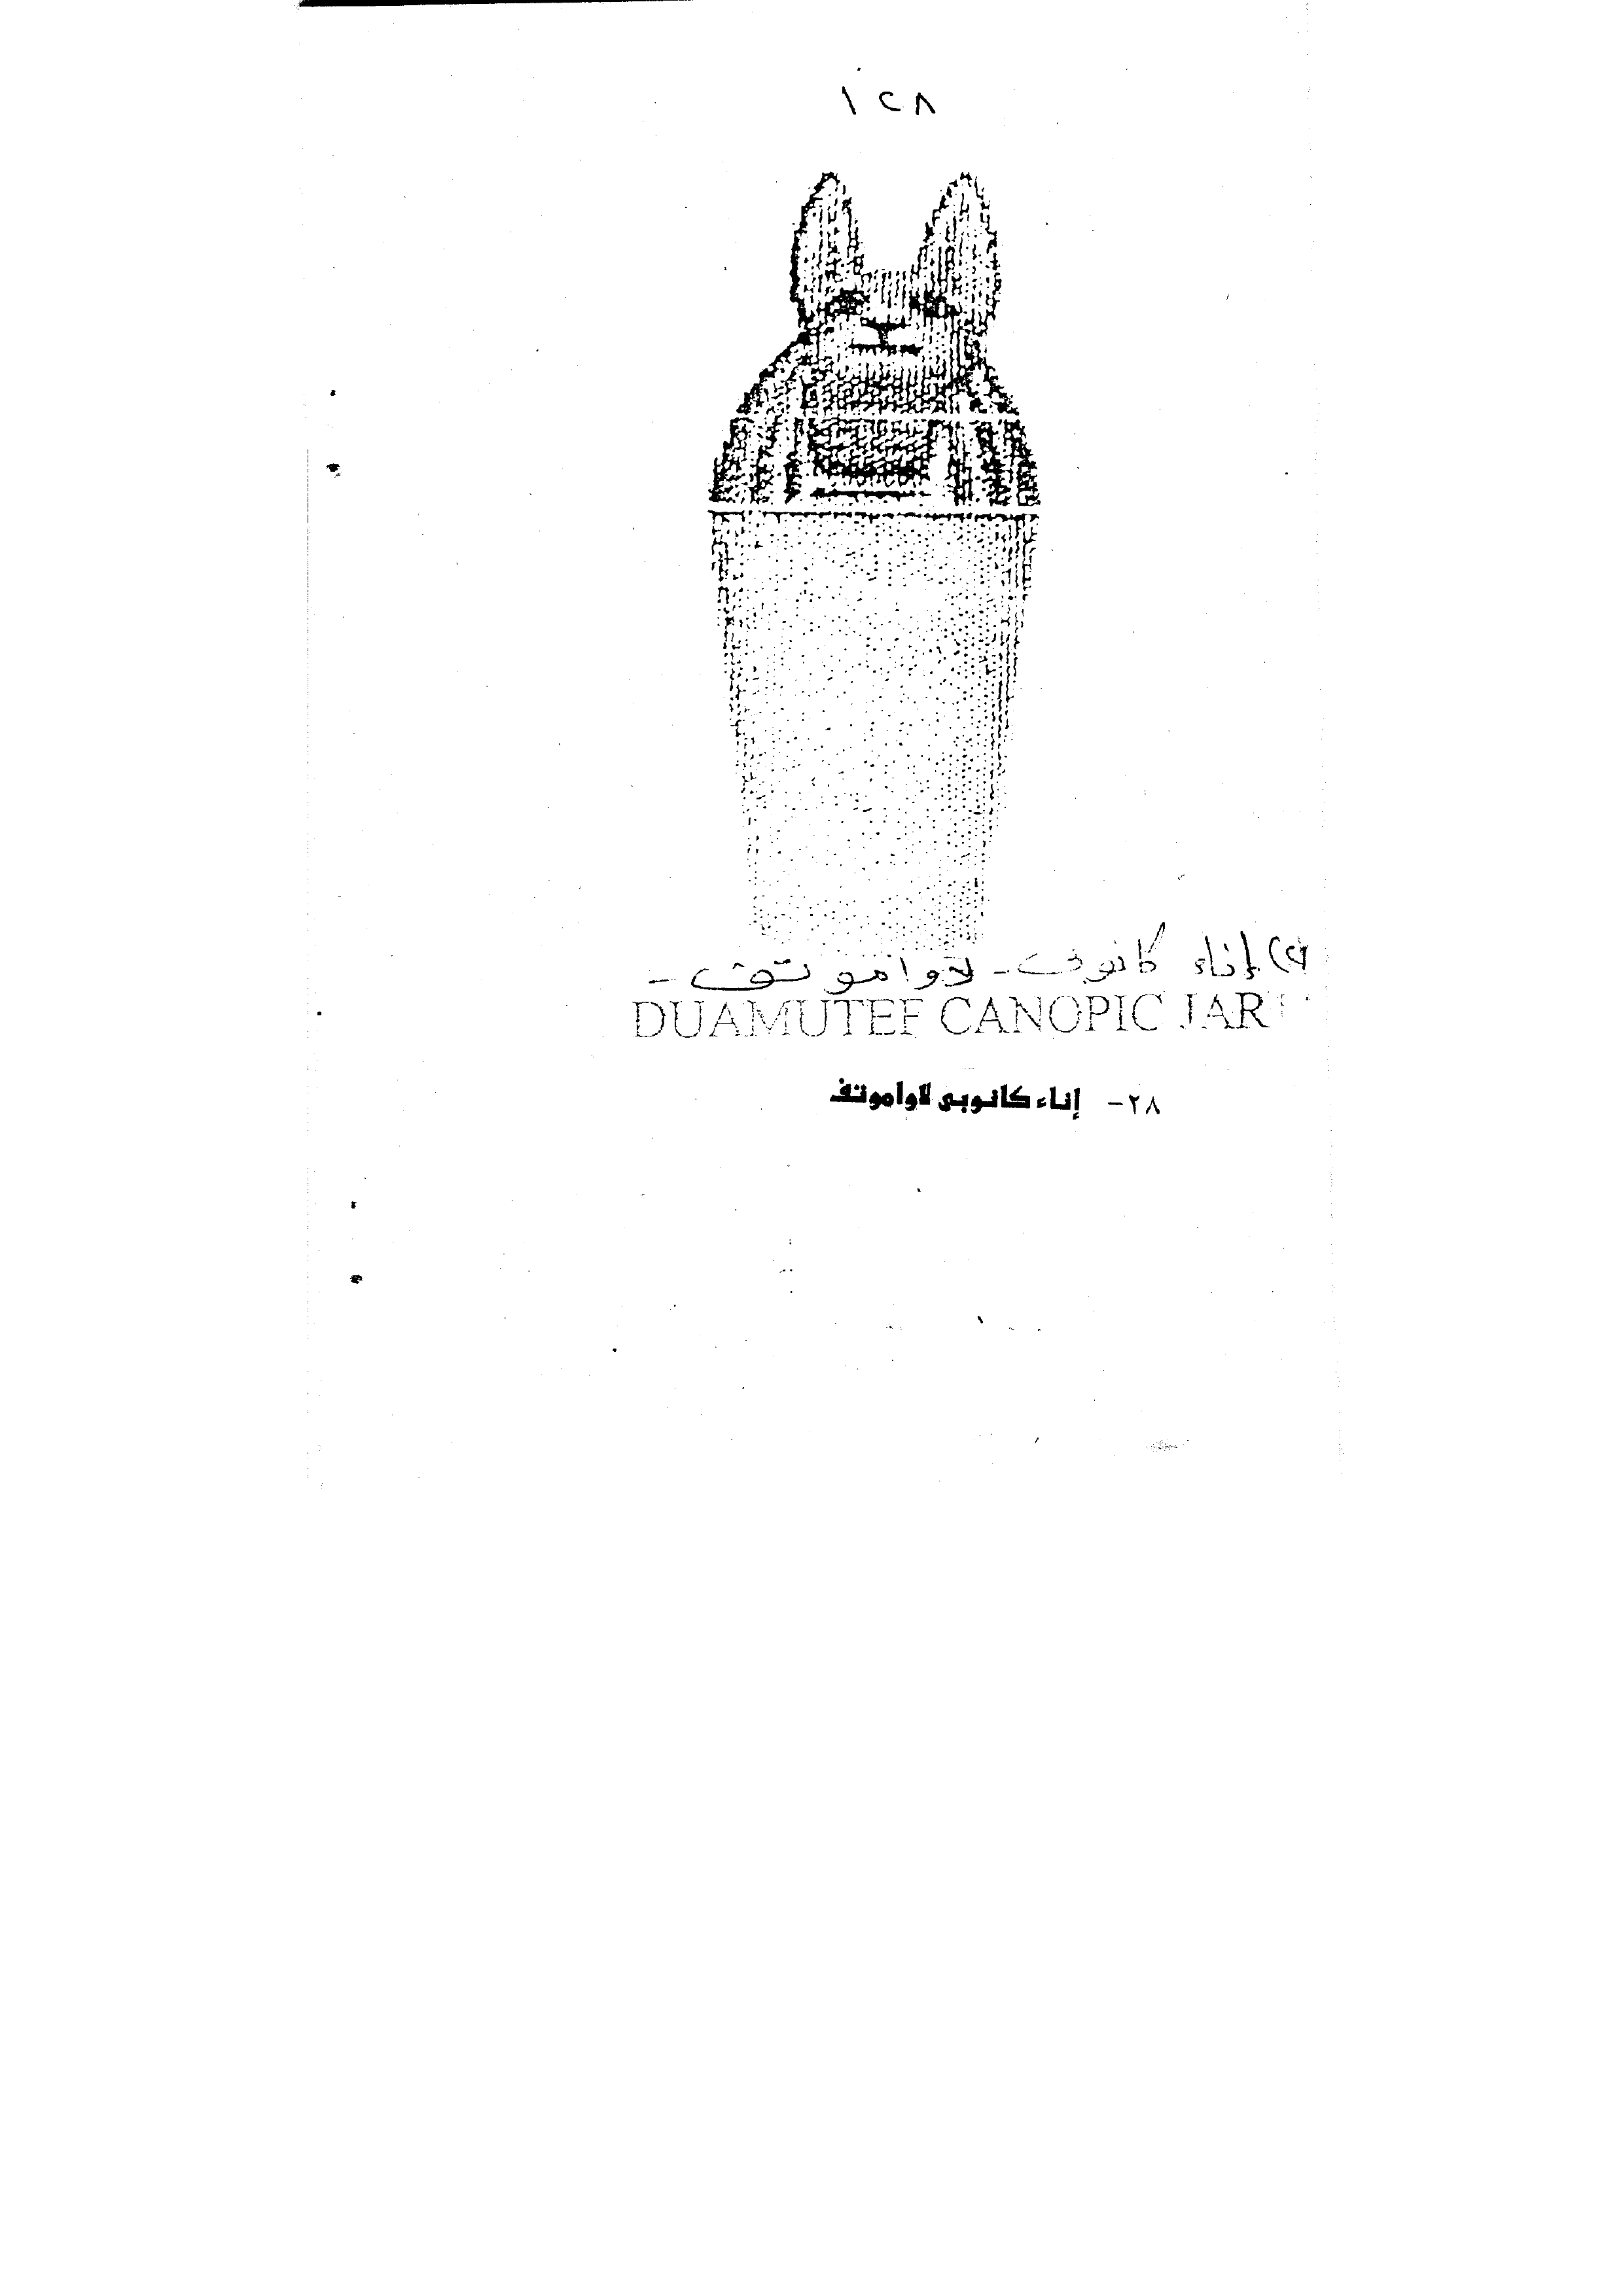 ١٢٨
٢) إناء كانوبى - لاوا مو تف -
DUAMUTEF CANOPIC JAR
٢٨- إناء كانوبى لاواموتف